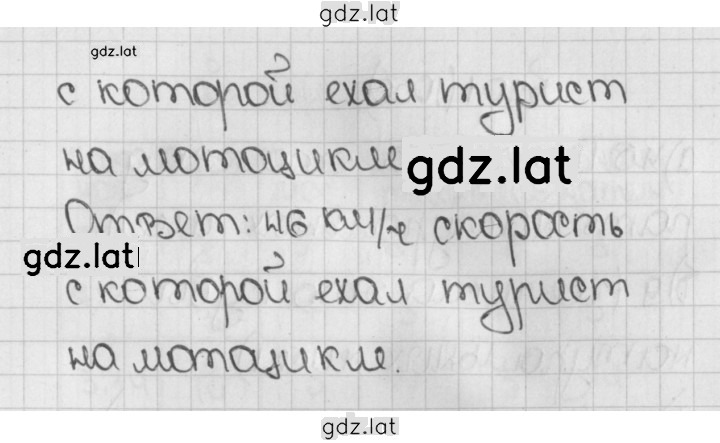 gdz.lat
gdz.lat
с которой ехал турист
на мотоцикле
gdz.lat
Ответ: 46 км/ч скорость
gdz.lat
с которой ехал турист
на мотоцикле.
gdz.lat